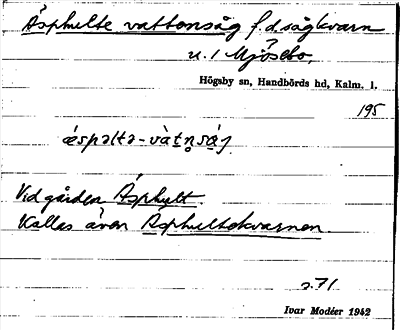 Åsphulte vattensåg f.d. sågkvarn
u. 1 Mjösebo.
Högsby sn, Handbörds hd, Kalm. l.
195
Vid gården Åsphult.
Kallas även Åsphultekvarnen
s. 71
Ivar Modéer 1942